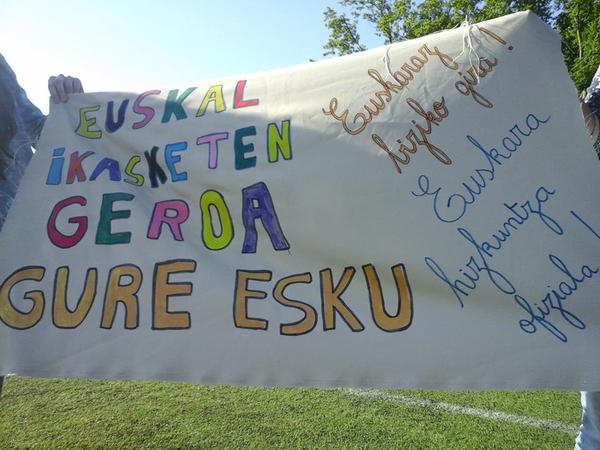 EUSKAL
iKASKETEN
GEROA
GURE ESKU
Euskaraz
biziko gira !
Euskara
hizkuntza
ofiziala !